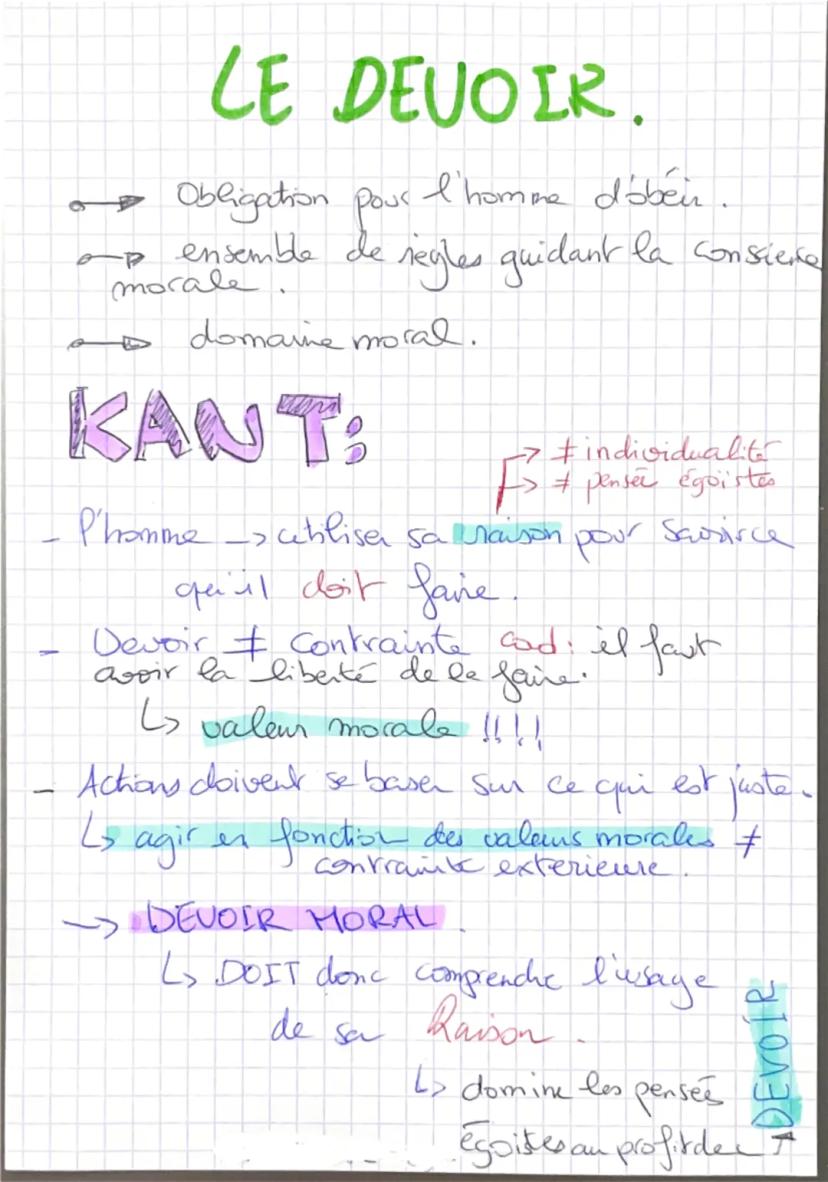 LE DEVOIR.
→ Obligation pour l'homme d'obéir.
→ ensemble de règles guidant la consciense
morale.
→ domaine moral.
KANT:
→ ≠ individualité
→ ≠ pensée égoïstes
- l'homme → utiliser sa raison pour savoir ce
qu'il doit faire.
- Devoir ≠ contrainte cad: il faut
avoir la liberté de le faire.
↳ valeur morale !!!!
- Actions doivent se baser sur ce qui est juste.
↳ agir en fonction des valeurs morales ≠
contrainte exterieure.
→ DEVOIR MORAL.
↳ DOIT donc comprendre l'usage
de sa Raison.
↳ domine les pensées
égoïstes au profit de
DEVOIR